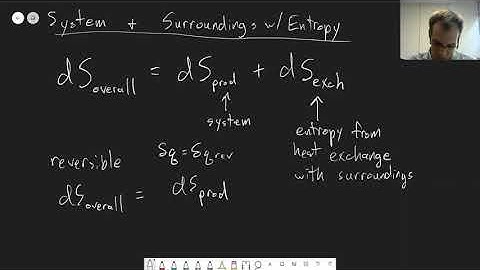 System + Surroundings w/ Entropy
dS_overall = dS_prod + dS_exch
system
entropy from
heat exchange
with surroundings
reversible
δq = δq_rev
dS_overall = dS_prod